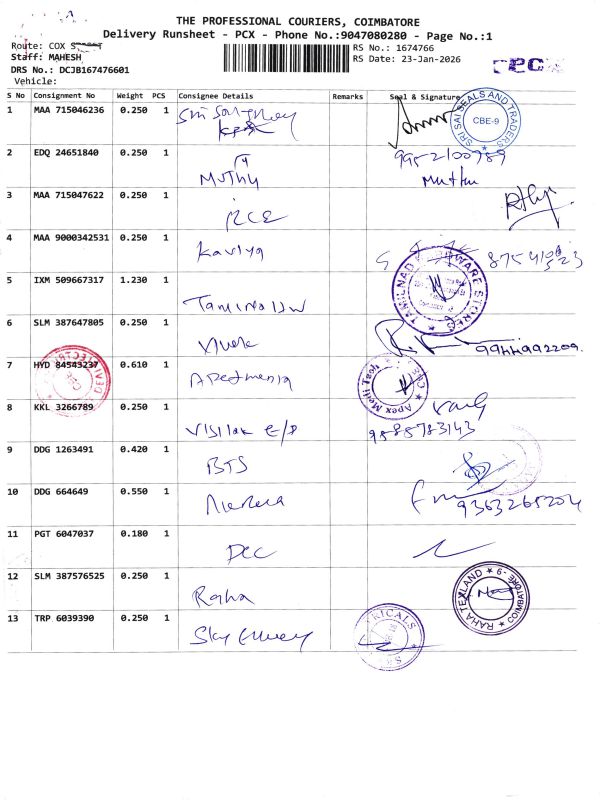 THE PROFESSIONAL COURIERS, COIMBATORE
Delivery Runsheet - PCX - Phone No.:9047080280 - Page No.:1
Route: COX
RS No.: 1674766
Staff: MAHESH
RS Date: 23-Jan-2026
DRS No.: DCJB167476601
Vehicle:
S No Consignment No Weight PCS Consignee Details Remarks Seal & Signature
1 MAA 715046236 0.250 1
SRI SAI SEALS AND TRADERS CBE-9
2 EDQ 24651840 0.250 1 Muthu 9952100789
Muthu
3 MAA 715047622 0.250 1 RCE
4 MAA 9000342531 0.250 1 Kaviya
5 IXM 509667317 1.230 1 Tamilnadu TAMILNADU HARDWARE STORES
6 SLM 387647805 0.250 1 9944992209
7 HYD 84543237 0.610 1 Apex
8 KKL 3266789 0.250 1 9585783143
9 DDG 1263491 0.420 1 BTS
10 DDG 664649 0.550 1 9363265204
11 PGT 6047037 0.180 1
12 SLM 387576525 0.250 1 Raha RAHA TEXLAND
13 TRP 6039390 0.250 1 Sky